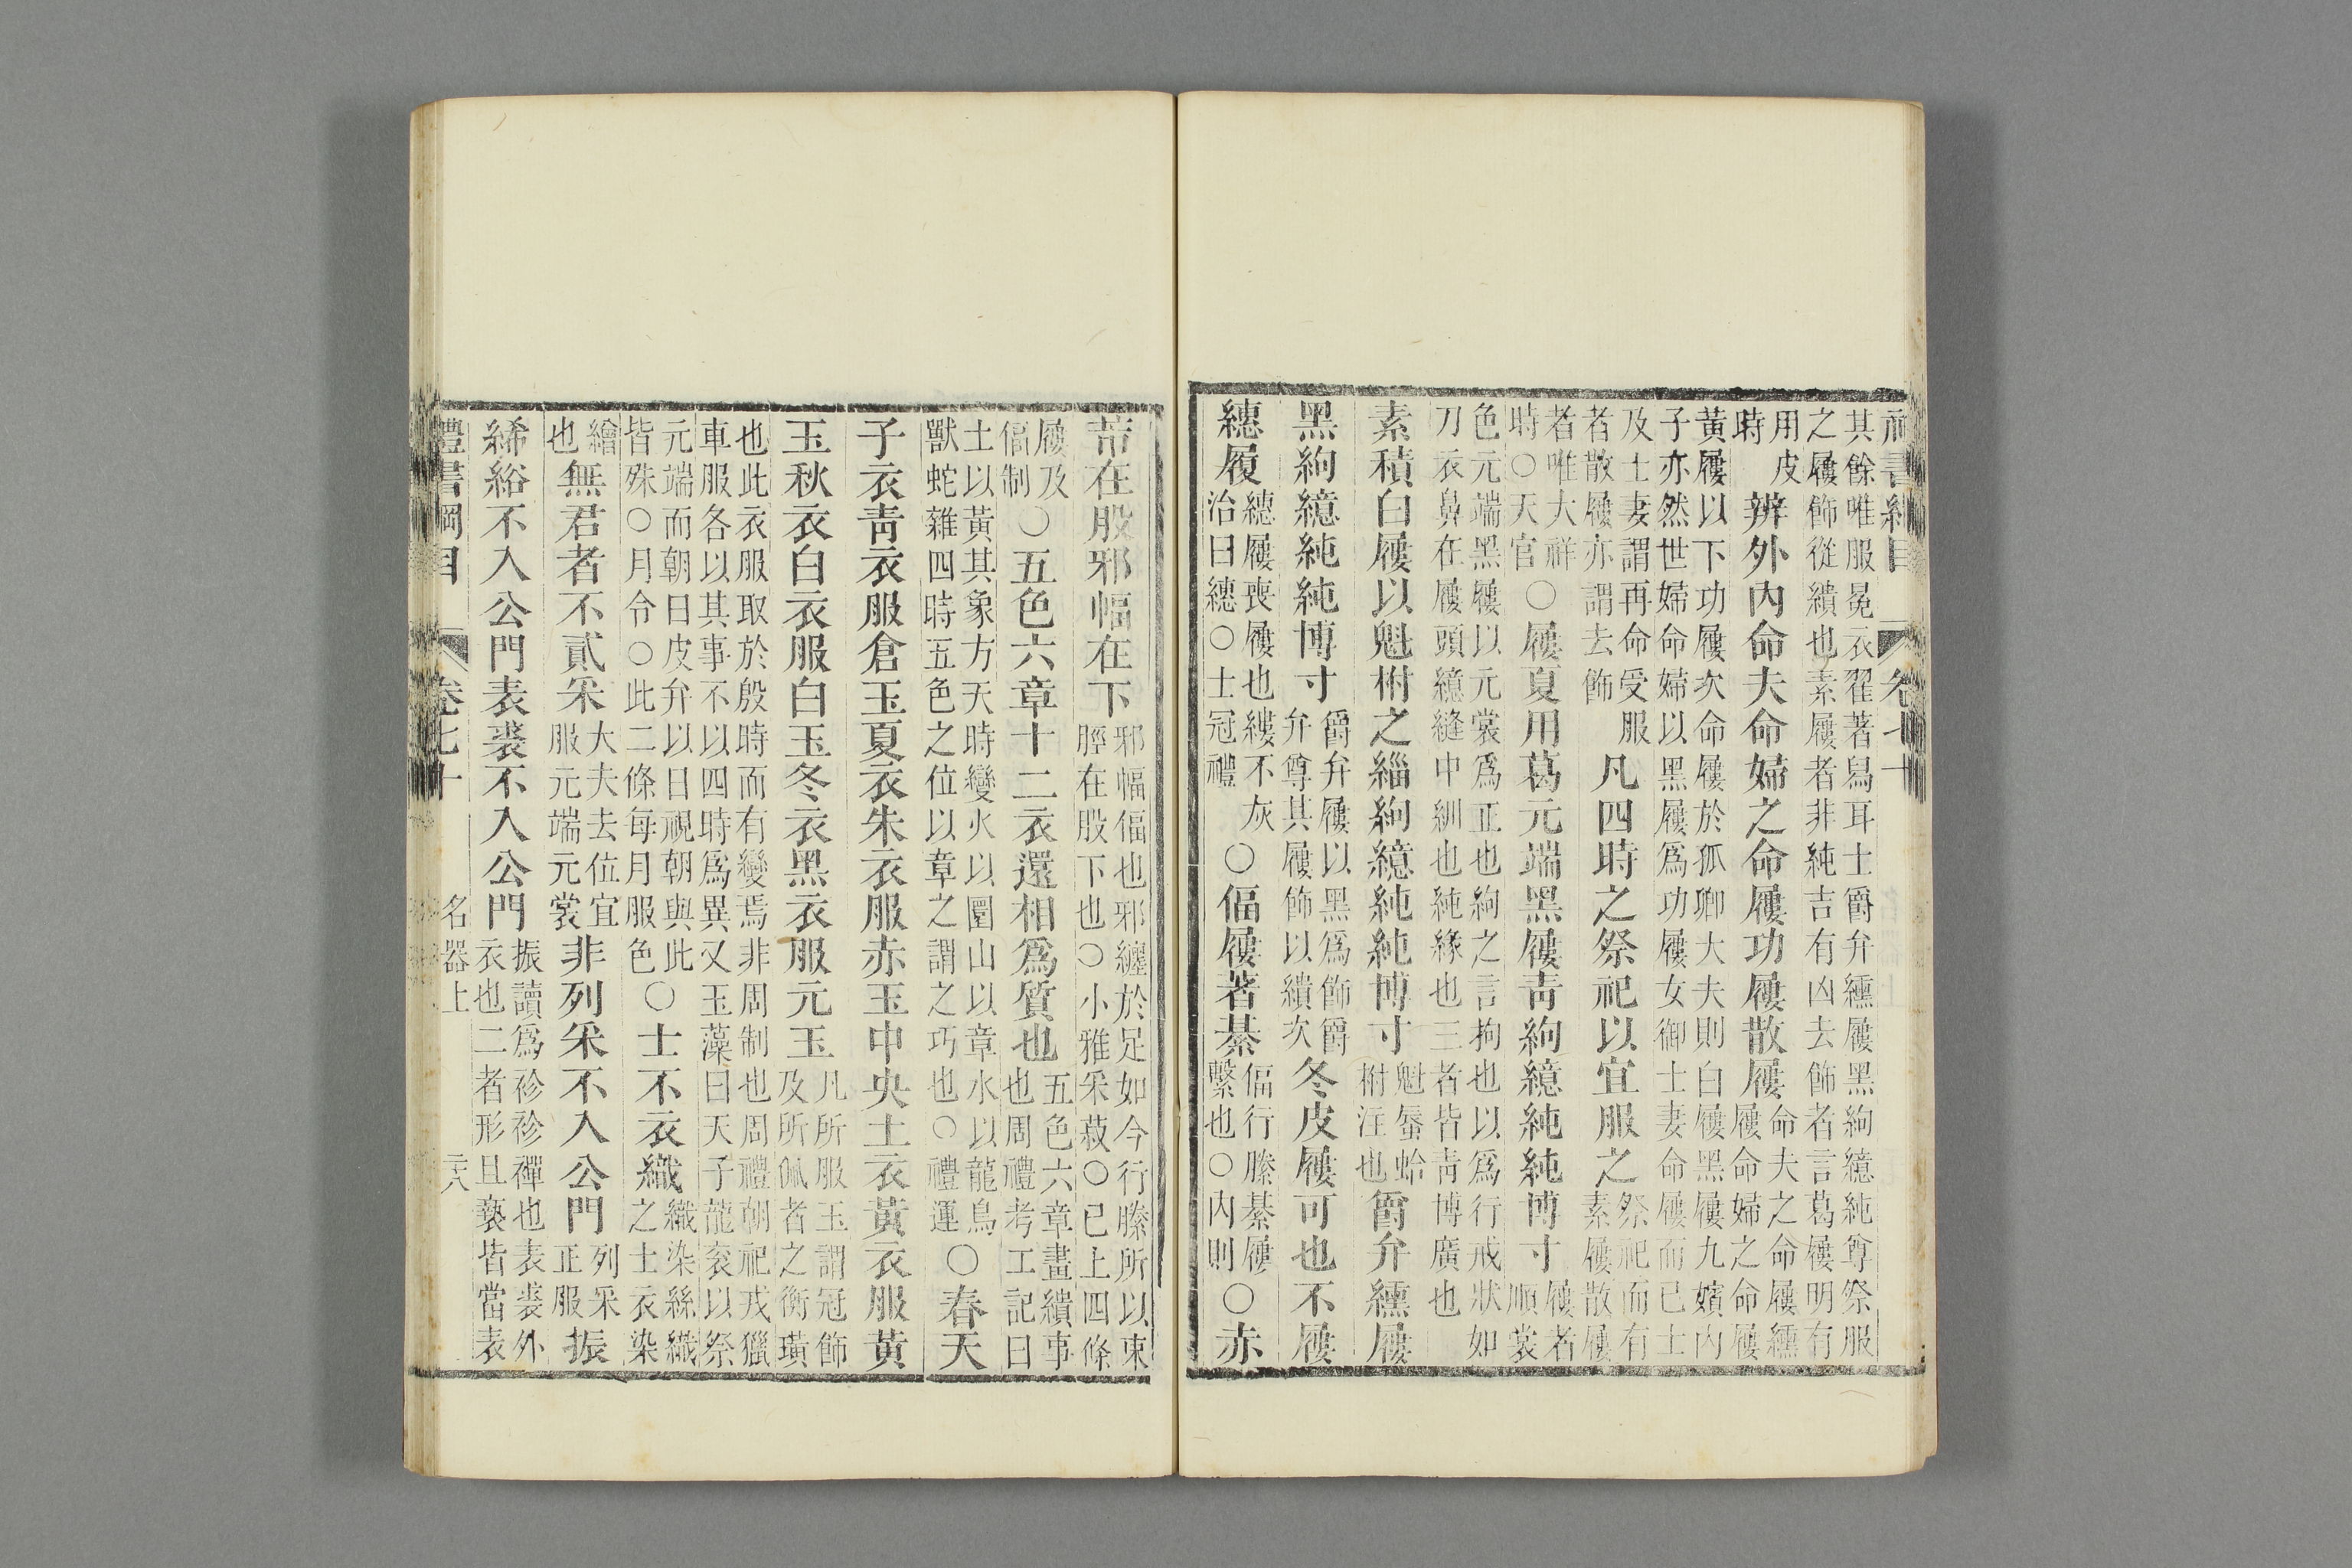 其餘唯服冕衣翟著舄耳士爵弁纁屨黑絇繶純尊祭服
之屨飾從繢也素屨者非純吉有凶去飾者言葛屨明有
用皮
時
辨外內命夫命婦之命屨功屨散屨
命夫之命屨纁
屨命婦之命屨
黃屨以下功屨次命屨於孤卿大夫則白屨黑屨九嬪內
子亦然世婦命婦以黑屨爲功屨女御士妻命屨而已士
及士妻謂再命受服
者散屨亦謂去飾
凡四時之祭祀以宜服之
祭祀而有
素屨散屨
者唯大祥
時○天官
○屨夏用葛元端黑屨靑絇繶純純博寸
屨者
順裳
色元端黑屨以元裳爲正也絇之言拘也以爲行戒狀如
刀衣鼻在屨頭繶縫中紃也純緣也三者皆靑博廣也
素積白屨以魁柎之緇絇繶純純博寸
魁蜃蛤
柎注也
爵弁纁屨
黑絇繶純純博寸
爵弁屨以黑爲飾爵
弁尊其屨飾以繢次
冬皮屨可也不屨
繐履
繐屨喪屨也縷不灰
治曰繐○士冠禮
○偪屨著綦
偪行縢綦屨
繫也○內則
○赤
芾在股邪幅在下
邪幅偪也邪纏於足如今行縢所以束
脛在股下也○小雅采菽○已上四條
屨及
偪制
○五色六章十二衣還相爲質也
五色六章畫繢事
也周禮考工記曰
土以黃其象方天時變火以圜山以章水以龍鳥
獸蛇雜四時五色之位以章之謂之巧也○禮運
○春天
子衣靑衣服倉玉夏衣朱衣服赤玉中央土衣黃衣服黃
玉秋衣白衣服白玉冬衣黑衣服元玉
凡所服玉謂冠飾
及所佩者之衡璜
也此衣服取於殷時而有變焉非周制也周禮朝祀戎獵
車服各以其事不以四時爲異又玉藻曰天子龍袞以祭
元端而朝日皮弁以日視朝與此
皆殊○月令○此二條每月服色
○士不衣織
織染絲織
之士衣染
繒
也
無君者不貳采
大夫去位宜
服元端元裳
非列采不入公門
列采
正服
振
絺綌不入公門表裘不入公門
振讀爲袗袗襌也表裘外
衣也二者形且褻皆當表
禮書綱目 卷七十 名器上